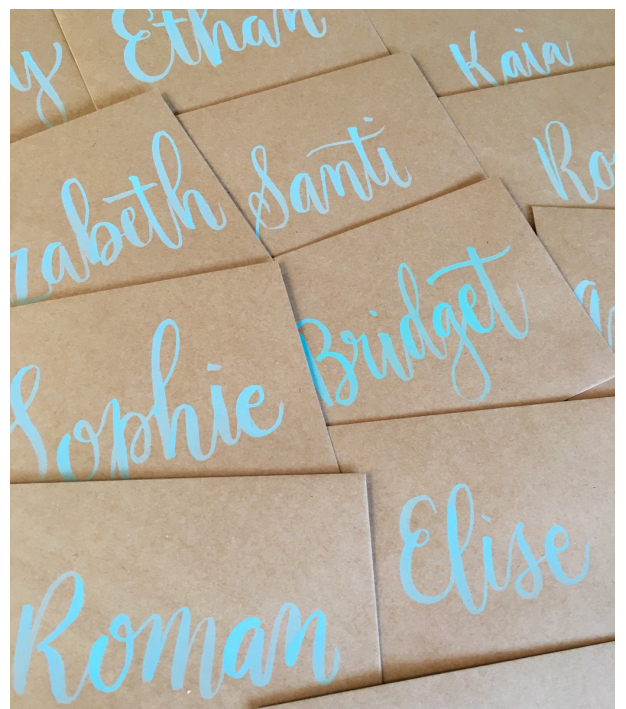 y
Ethan
Kaia
zabeth
Santi
Ro
Bridget
Sophie
Elise
Roman